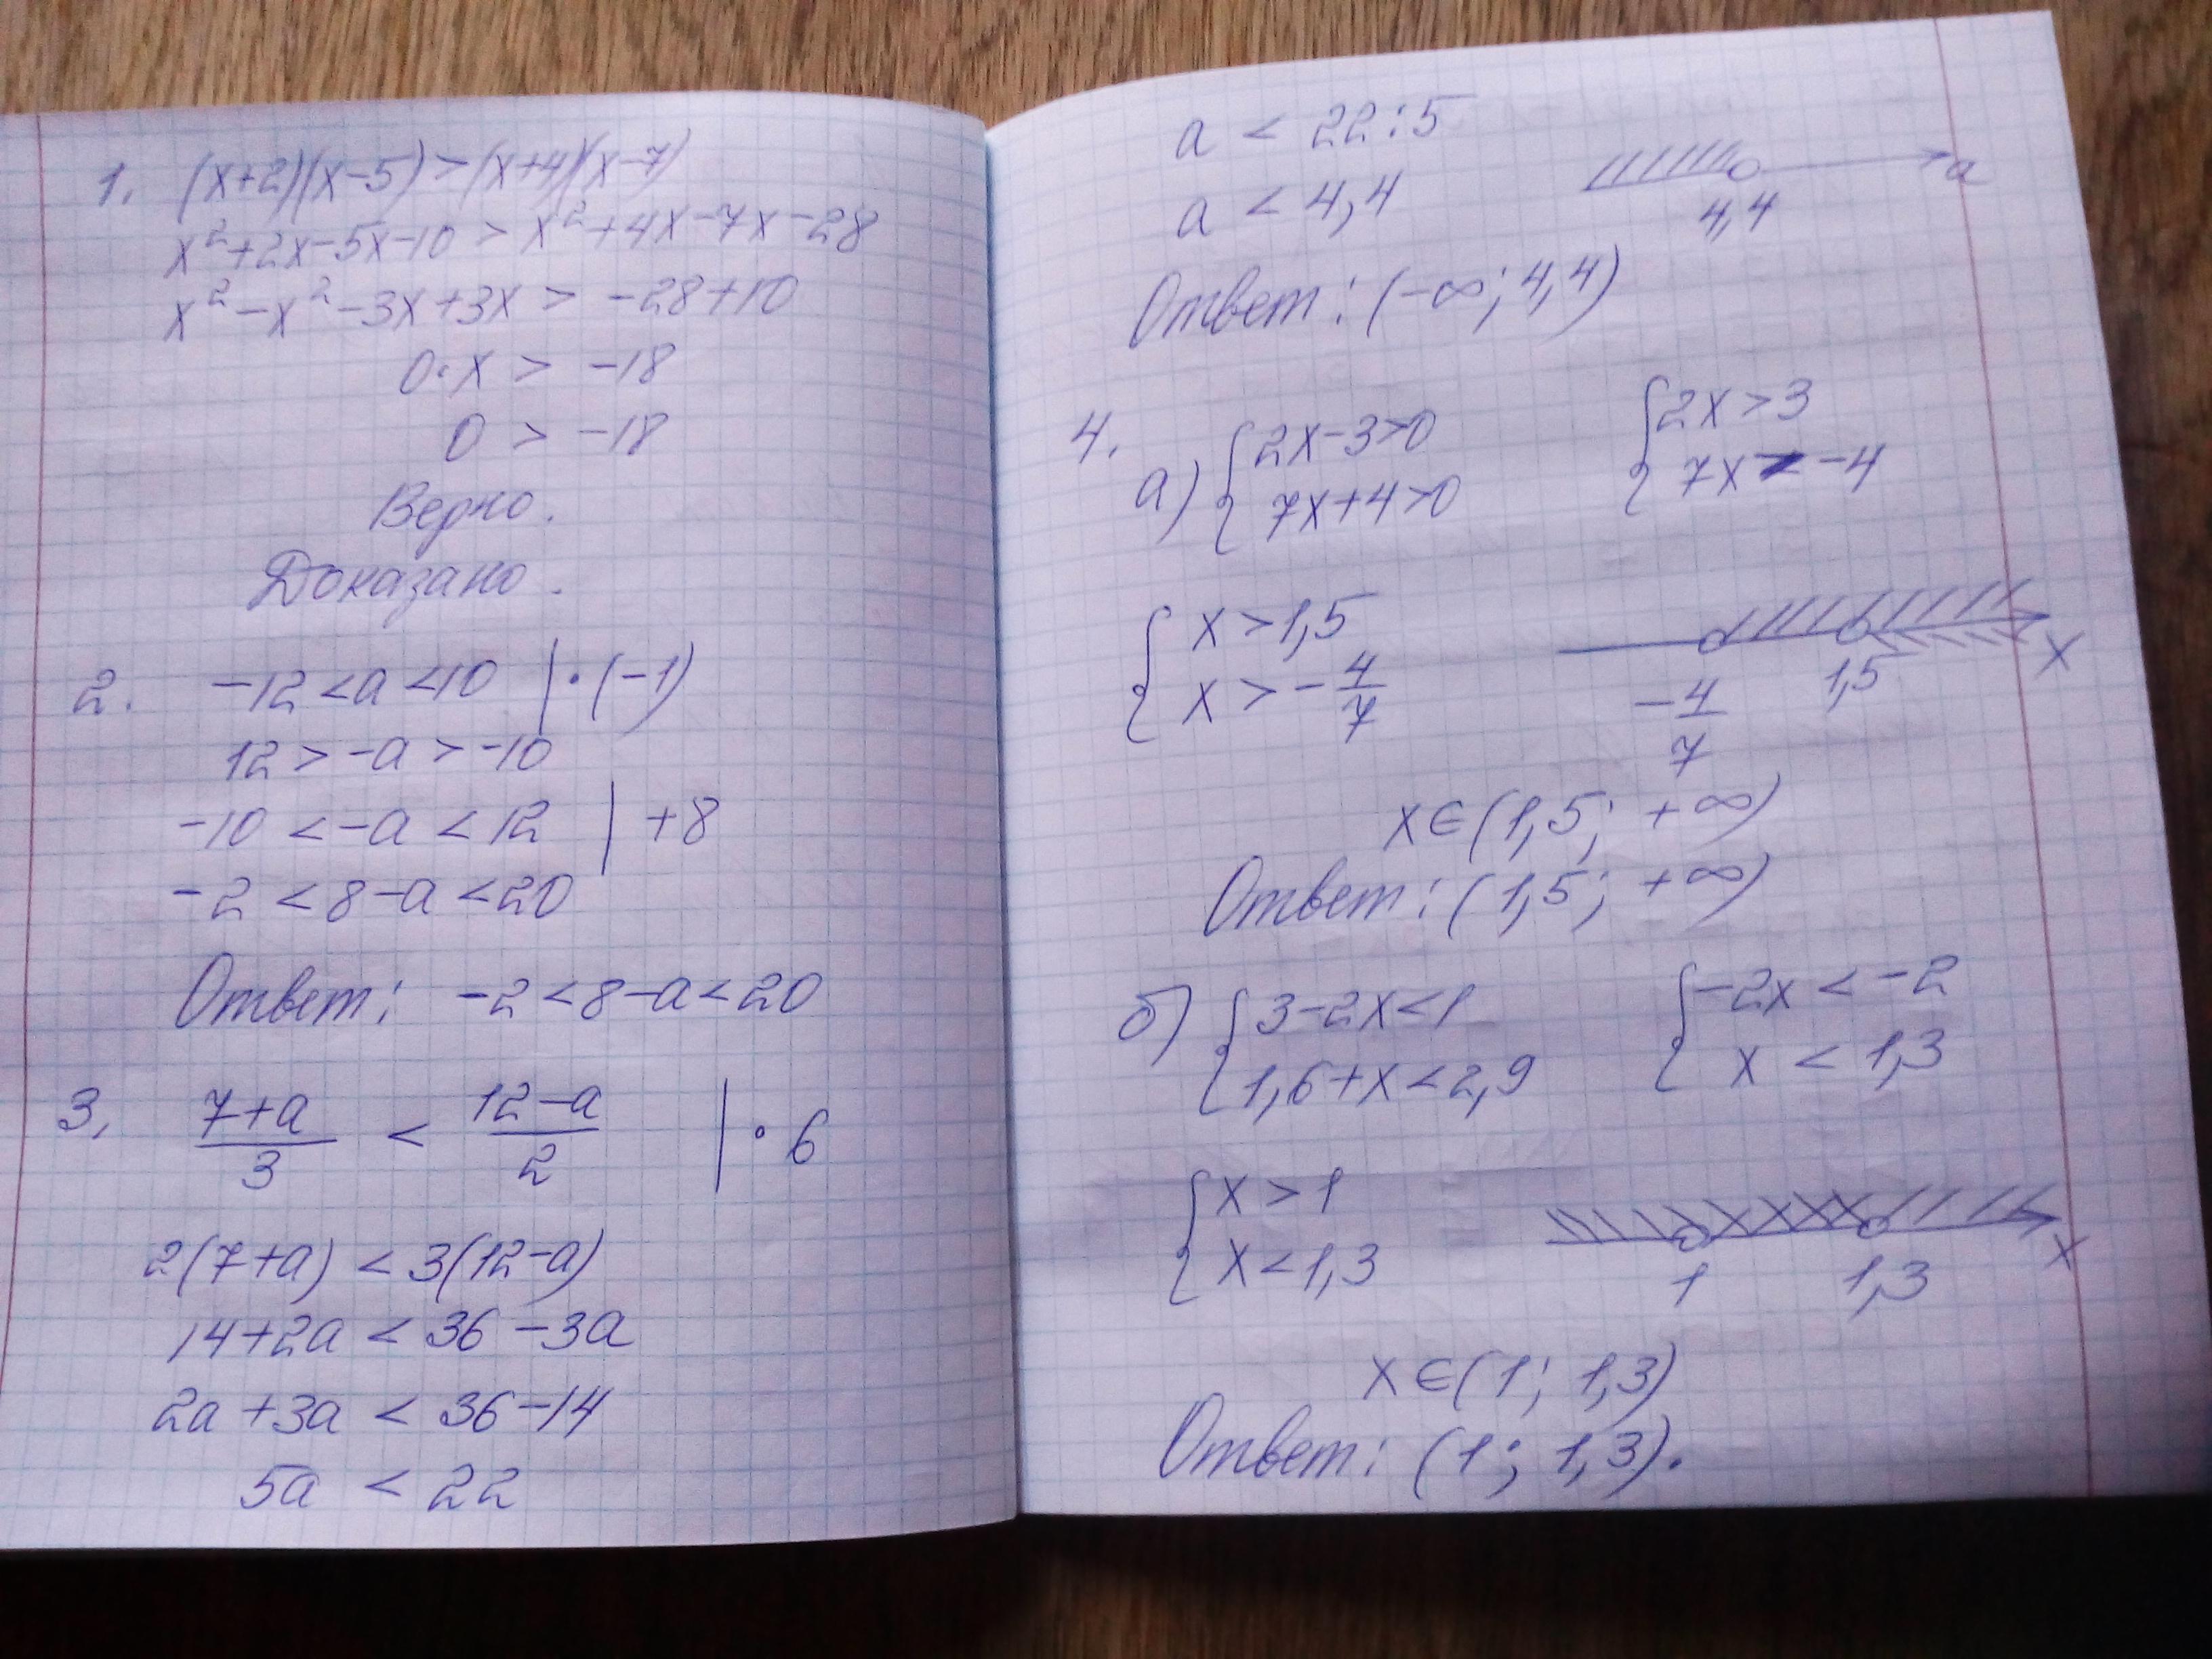 1. (x+2)(x-5)>(x+4)(x-7)
x²+2x-5x-10 > x²+4x-7x-28
x²-x²-3x+3x > -28+10
0·x > -18
0 > -18
Верно.
Доказано.
2. -12<a<10 | ·(-1)
12 > -a > -10
-10 < -a < 12 | +8
-2 < 8-a < 20
Ответ: -2<8-a<20
3. (7+a)/3 < (12-a)/2 | · 6
2(7+a) < 3(12-a)
14+2a < 36-3a
2a+3a < 36-14
5a < 22
a < 22:5
a < 4,4
a
4,4
Ответ: (-∞; 4,4)
4.
а) { 2x-3>0
7x+4>0
{ 2x>3
7x>-4
{ x>1,5
x>-4/7
-4/7
1,5
x
x∈(1,5; +∞)
Ответ: (1,5; +∞)
б) { 3-2x<1
1,6+x<2,9
{ -2x < -2
x < 1,3
{ x>1
x<1,3
1
1,3
x
x∈(1; 1,3)
Ответ: (1; 1,3).